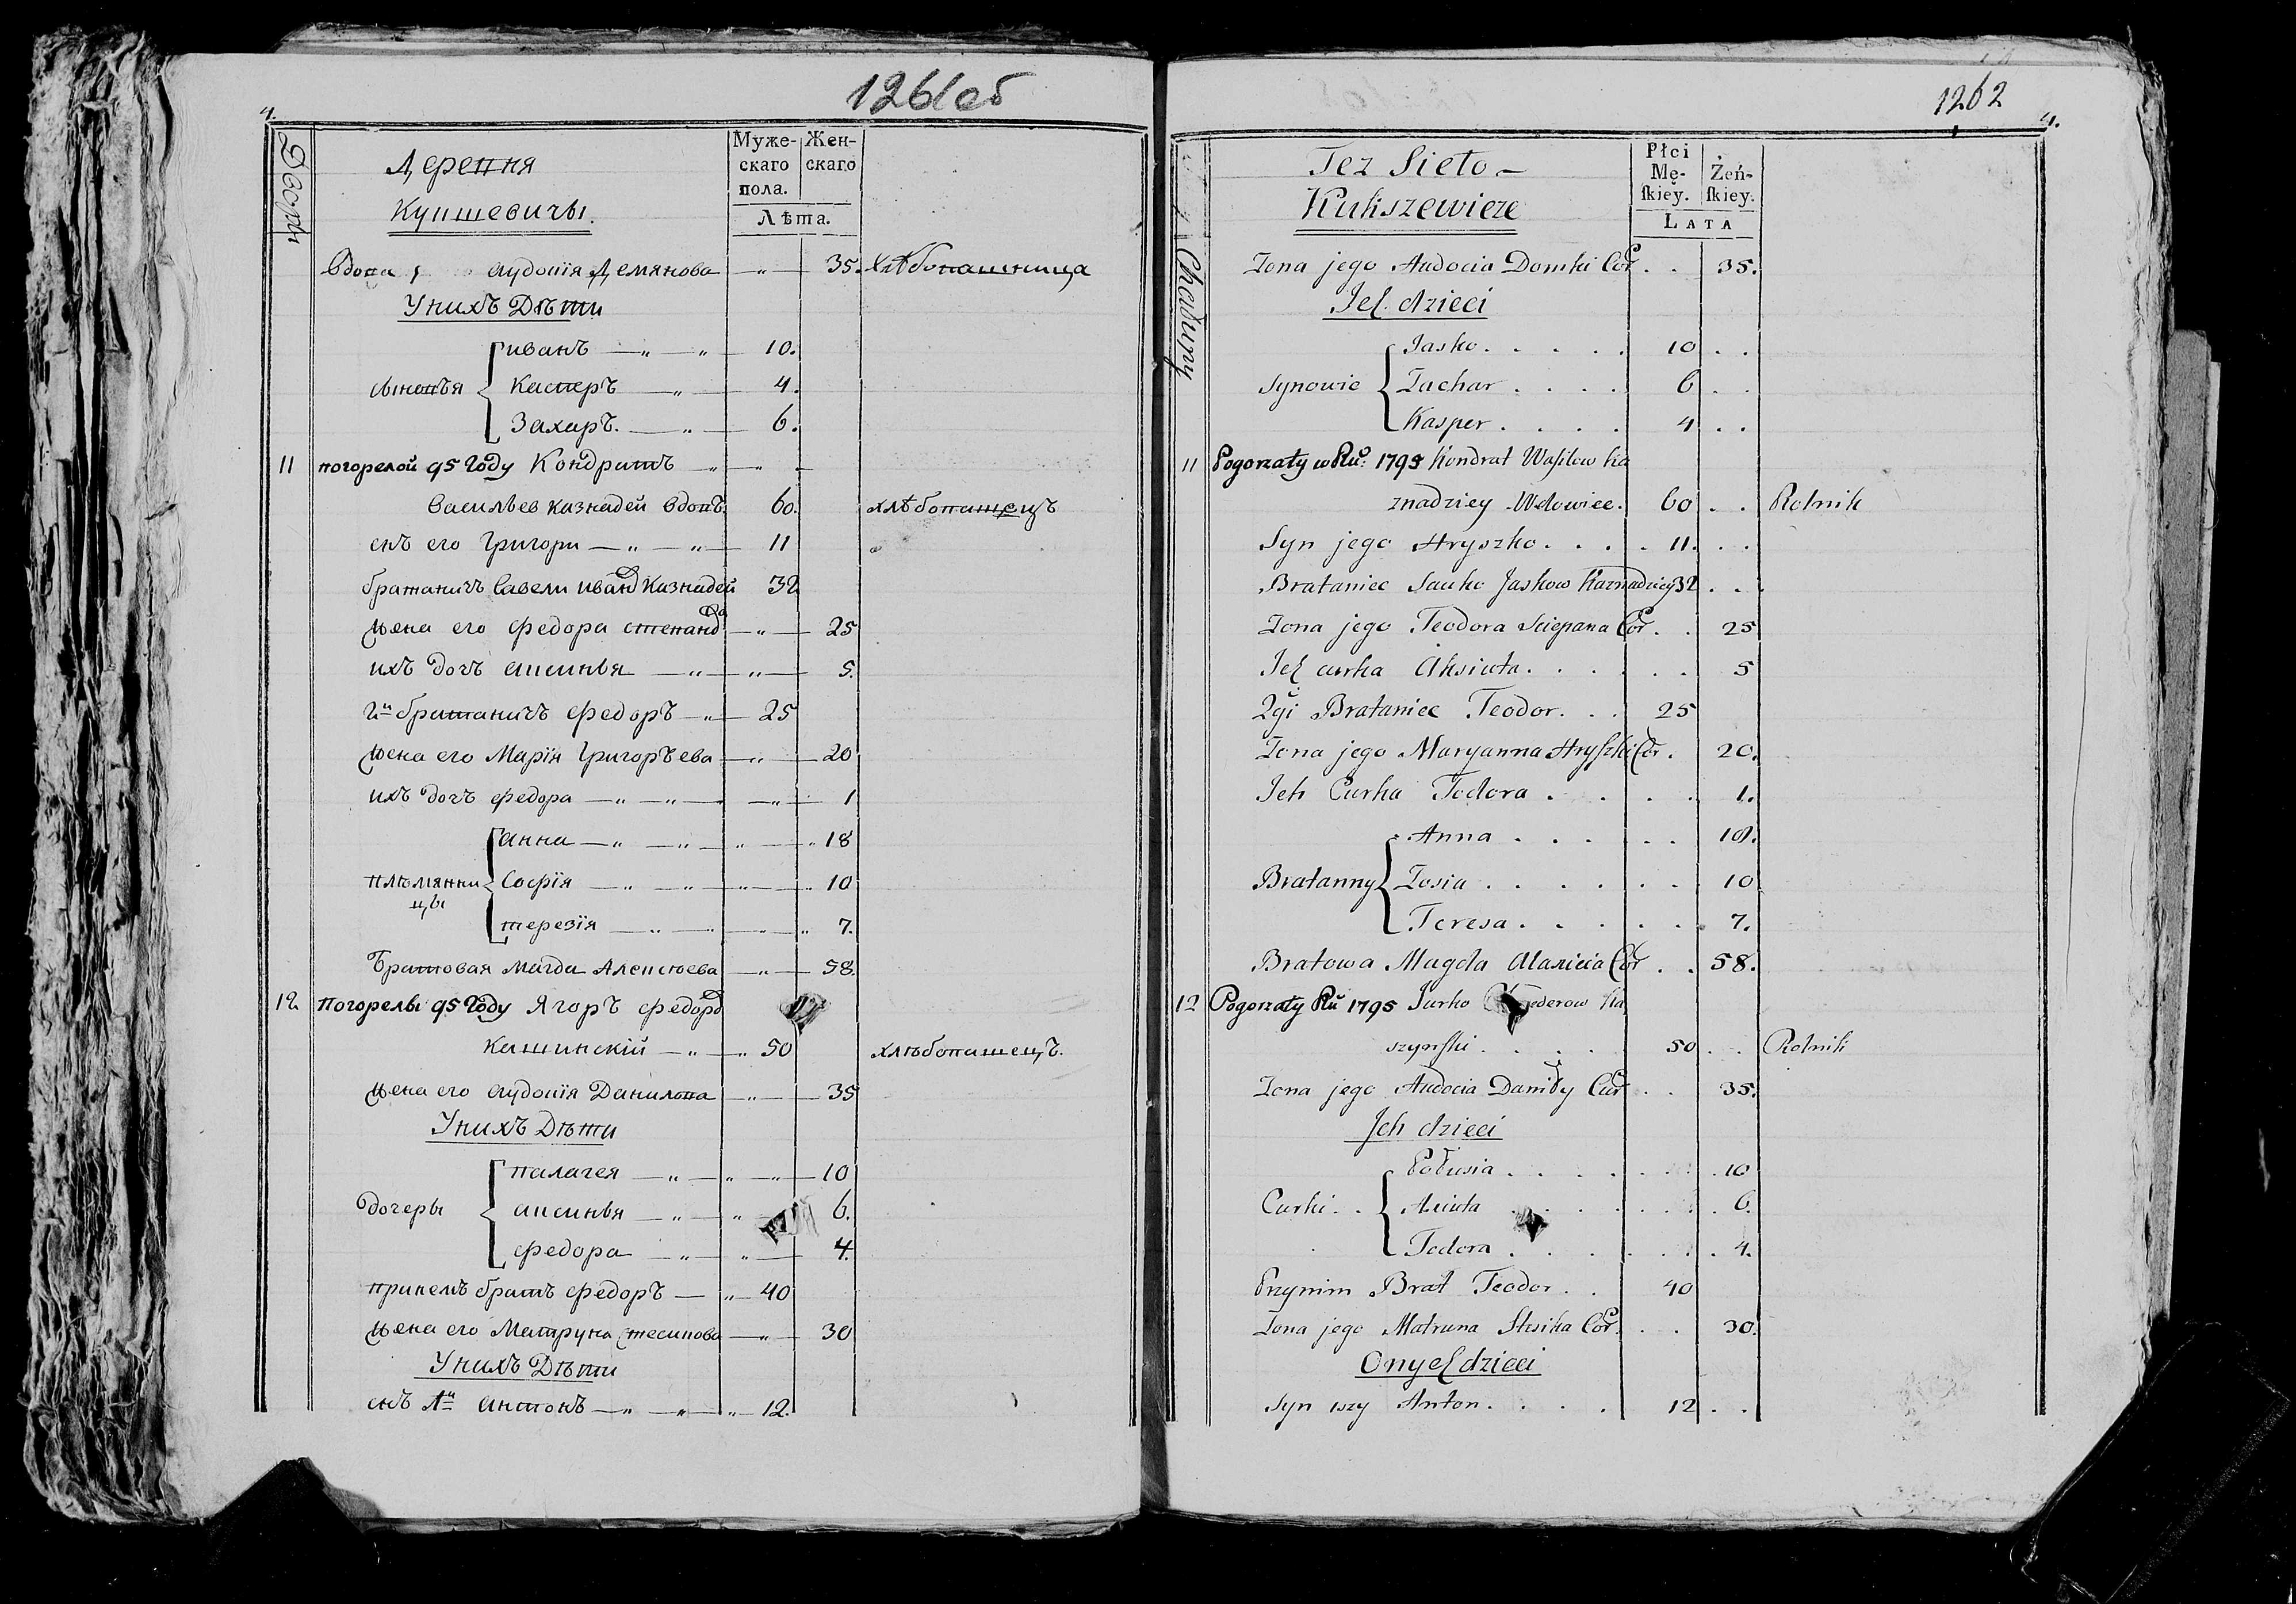 1261 об
Дворы
Деревня
Купшевичы.
Муже-
скаго
пола.
Жен-
скаго
Лѣта.
Вдова аудоція Демянова — " — 35. Хлѣбопашница
У нихъ Дѣти
иванъ — " — " — 10.
сыновья Касперъ — " — 4.
Захаръ. — " — 6.
11 погорелой 95 Году Кондратъ — " — " —
Васильев казнадей вдовъ. 60. хлѣбопашецъ
снъ его Григори — " — " — 11 "
братаничъ Савели Иванов Казнадей 32
жена его федора степанова — " — 25
ихъ дочъ аксинья — " — " — 5.
2й братаничъ федоръ — " — 25
жена его Марія Григоръева — " — 20
ихъ дочъ федора — " — " — — " — 1
анна — " — " — " — " 18
племянни
цы Софія — " — " — " — " 10
терезія — " — " — " — " 7.
Братовая Магда Алексѣева — " — 58.
12 погорелы 95 Году Ягоръ федоров
Кашинскій — " — " 50 хлѣбопашецъ.
жена его аудоція Данилова — " — 35
У нихъ Дѣти
палагея — " — " — " — 10
Дочеры аксинья — " — " — 6.
федора — " — " — 4.
принемъ братъ федоръ — " — 40
жена его Матруна стесикова — " — 30
У нихъ Дѣти
снъ 1й антонъ — " — " — " 12.
1262
Chałupy
Tez Sieło —
Kukszewicze
Płci
Mę-
ſkiey.
Żeń-
ſkiey.
LATA
Zona jego Audocia Domki Cor . . 35.
Jeh dzieci
Jasko. . . . . 10 . .
Synowie Zachar . . . . 6 . .
Kasper . . . . 4 . .
11 Pogorzały w Ru: 1795 Kondrat Waſilow Ka
znadziey Wdowiec. 60 . . Rolnik
Syn jego Hryszko. . . . 11. . .
Brataniec Sauko Jaskow Kaznadziey 32 . . .
Zona jego Teodora Sciepana Cor . . 25
Jeh curka Aksiuta. . . . . . 5
2gi Brataniec Teodor. . . 25
Zona jego Maryanna Hryſzki Cor . 20.
Jch Curka Todora . . . . 1.
Anna . . . . . 18.
Bratanny Zosia . . . . . . 10
Teresa. . . . . . 7.
Bratowa Magda Alaxieia Cor . . 58.
12 Pogorzały Ru 1795 Jurko Chwederow Ka
szynſki . . . . 50 . . Rolnik
Zona jego Audocia Daniły Cur . . 35.
Jch dzieci
Połusia . . . . . . 10
Curki . . Axiuta . . . . . . 6.
Todora . . . . . . 4.
Przynim Brat Teodor . . 40
Zona jego Matruna Stesika Cor. . . 30.
Onyeh dzieci
Syn 1szy Anton. . . . 12 . .